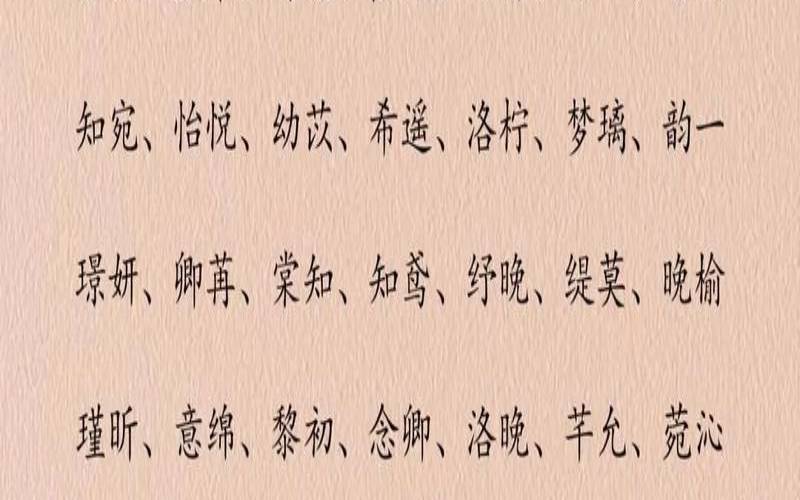 知宛、怡悦、幼苡、希遥、洛柠、梦璃、韵一
璟妍、卿苒、棠知、知鸢、纾晚、缇莫、晚榆
瑾昕、意绵、黎初、念卿、洛晚、芊允、菀沁